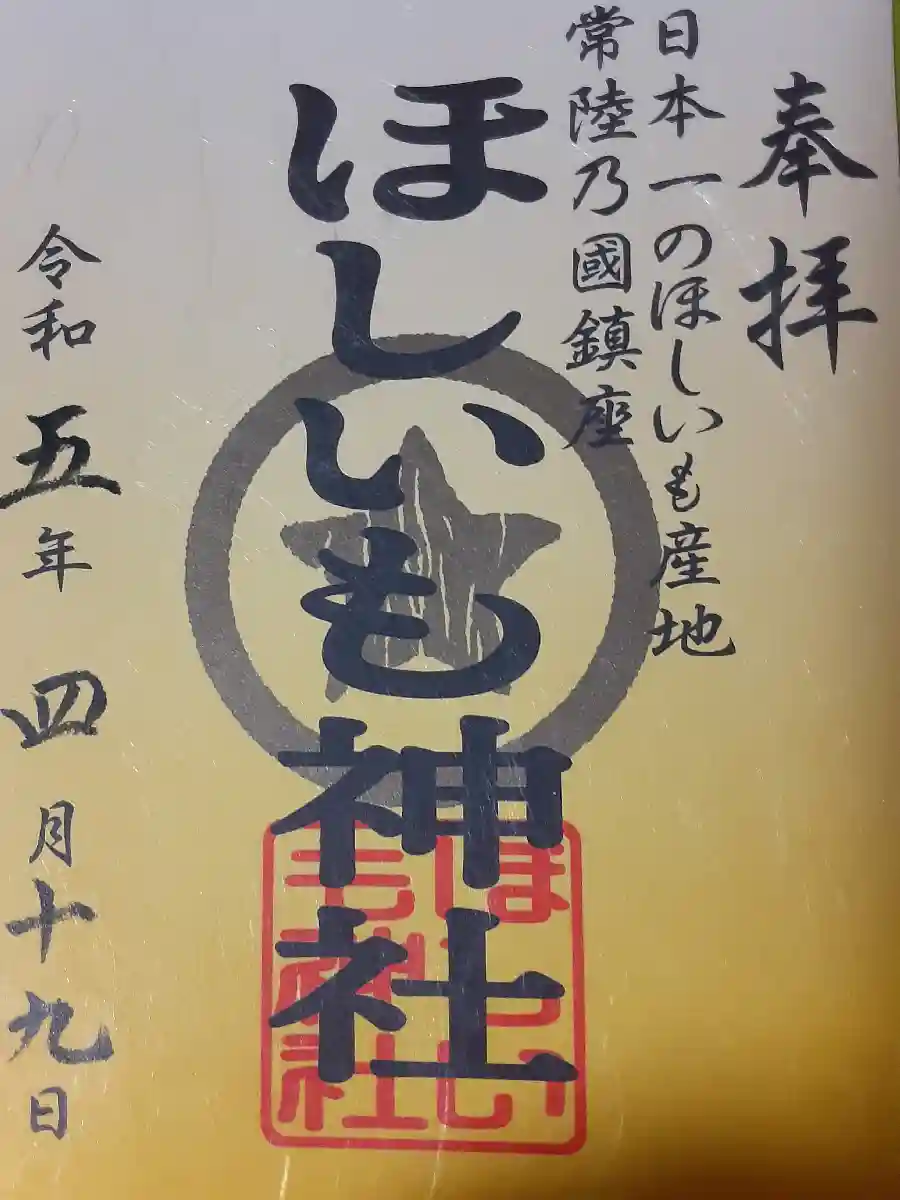 奉拝
日本一のほしいも産地
常陸乃國鎮座
ほしいも神社
令和五年四月十九日